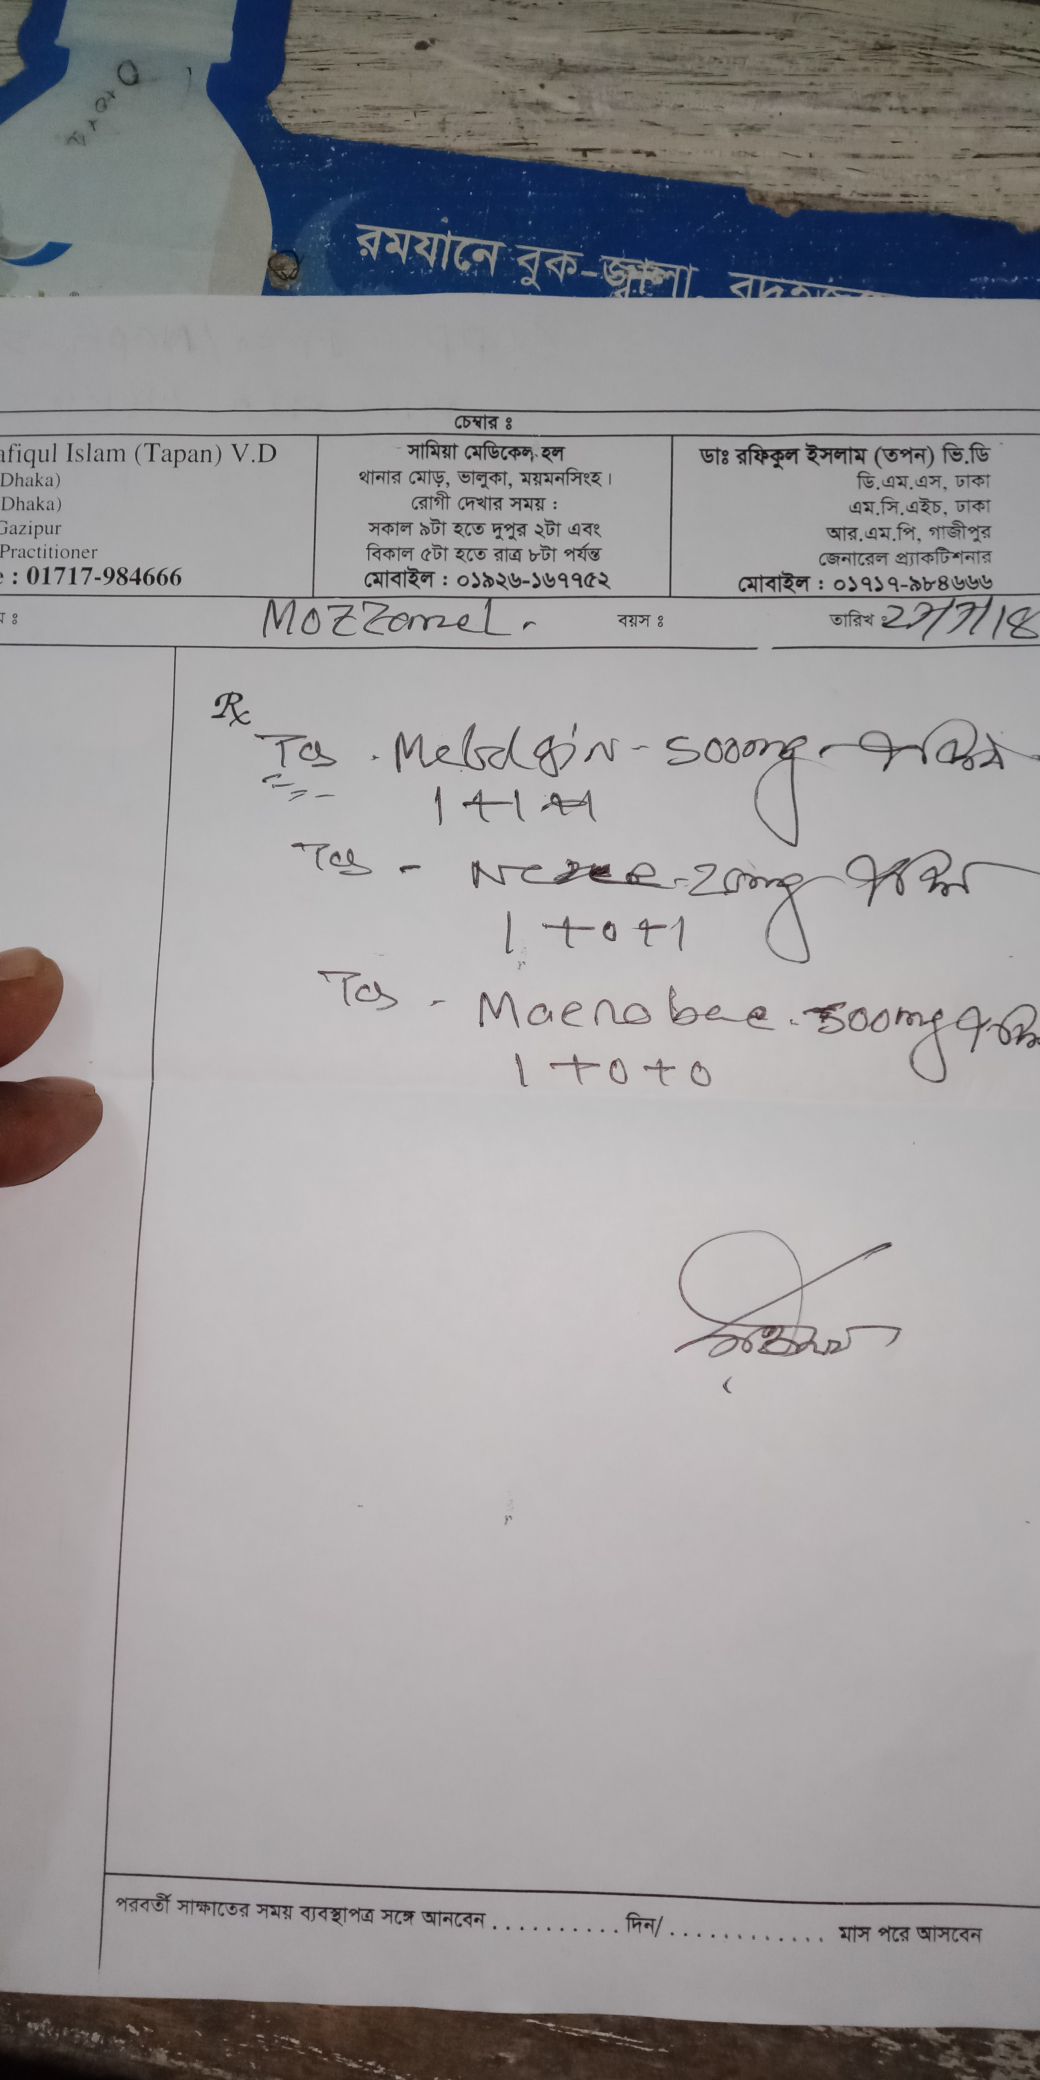 রমযানে বুক-জ্বালা,
চেম্বার ঃ
afiqul Islam (Tapan) V.D
Dhaka)
Dhaka)
Gazipur
Practitioner
: 01717-984666
সামিয়া মেডিকেল হল
থানার মোড়, ভালুকা, ময়মনসিংহ।
রোগী দেখার সময় :
সকাল ৯টা হতে দুপুর ২টা এবং
বিকাল ৫টা হতে রাত্র ৮টা পর্যন্ত
মোবাইল : ০১৯২৬-১৬৭৭৫২
ডাঃ রফিকুল ইসলাম (তপন) ভি.ডি
ডি.এম.এস, ঢাকা
এম.সি.এইচ, ঢাকা
আর.এম.পি, গাজীপুর
জেনারেল প্র্যাকটিশনার
মোবাইল : ০১৭১৭-৯৮৪৬৬৬
MOZZamel. বয়স ঃ তারিখ ঃ
Rx
Tab. 500mg
1+1+1
Tab - 20mg
1+0+1
Tab - 500mg
1+0+0
পরবর্তী সাক্ষাতের সময় ব্যবস্থাপত্র সঙ্গে আনবেন . . . . . . . . . . দিন/ . . . . . . . . . . . . মাস পরে আসবেন